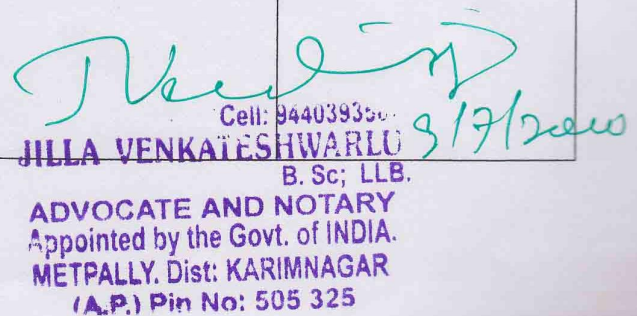 Cell: 94403935
JILLA VENKATESHWARLU
9/7/2010
B. Sc; LLB.
ADVOCATE AND NOTARY
Appointed by the Govt. of INDIA.
METPALLY. Dist: KARIMNAGAR
(A.P.) Pin No: 505 325